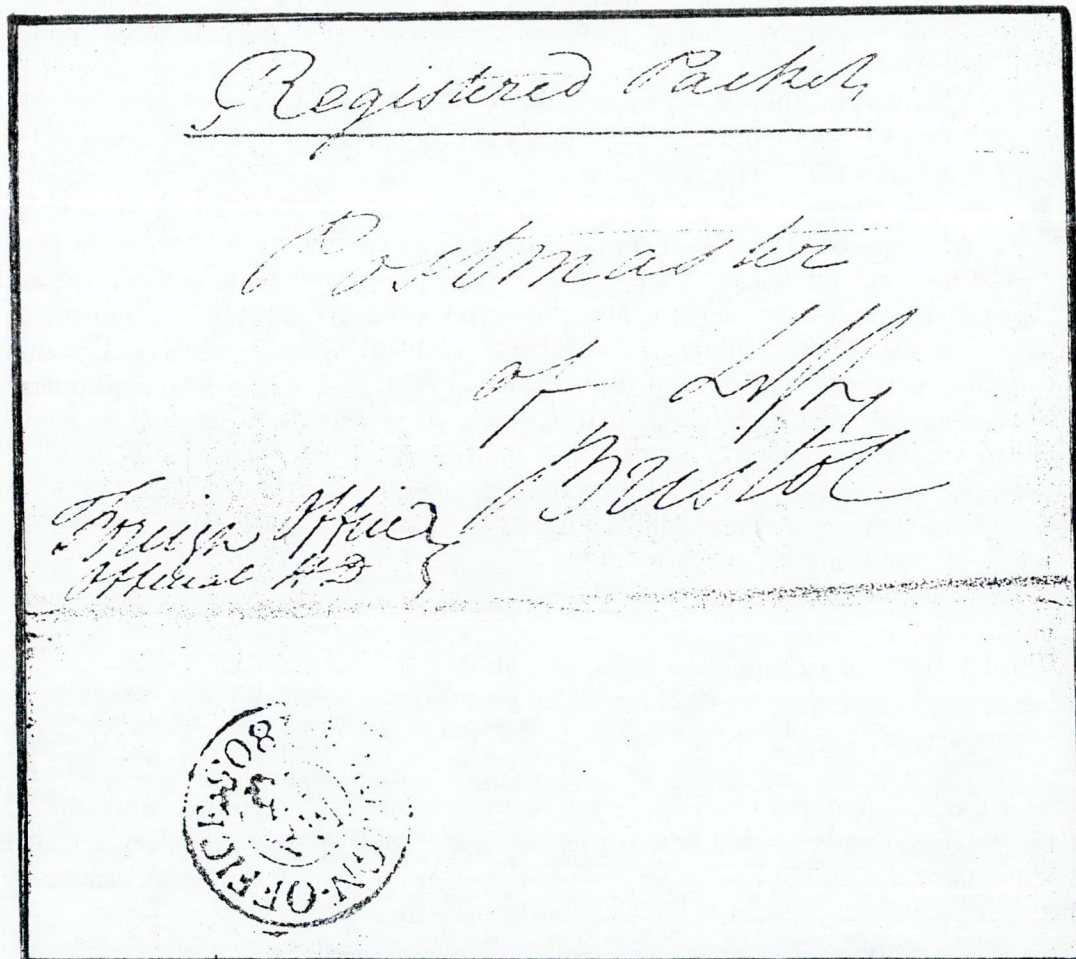 Registered Packet
Postmaster
of
Bristol
Foreign Office
Official HD
GN-OFFICE 1808